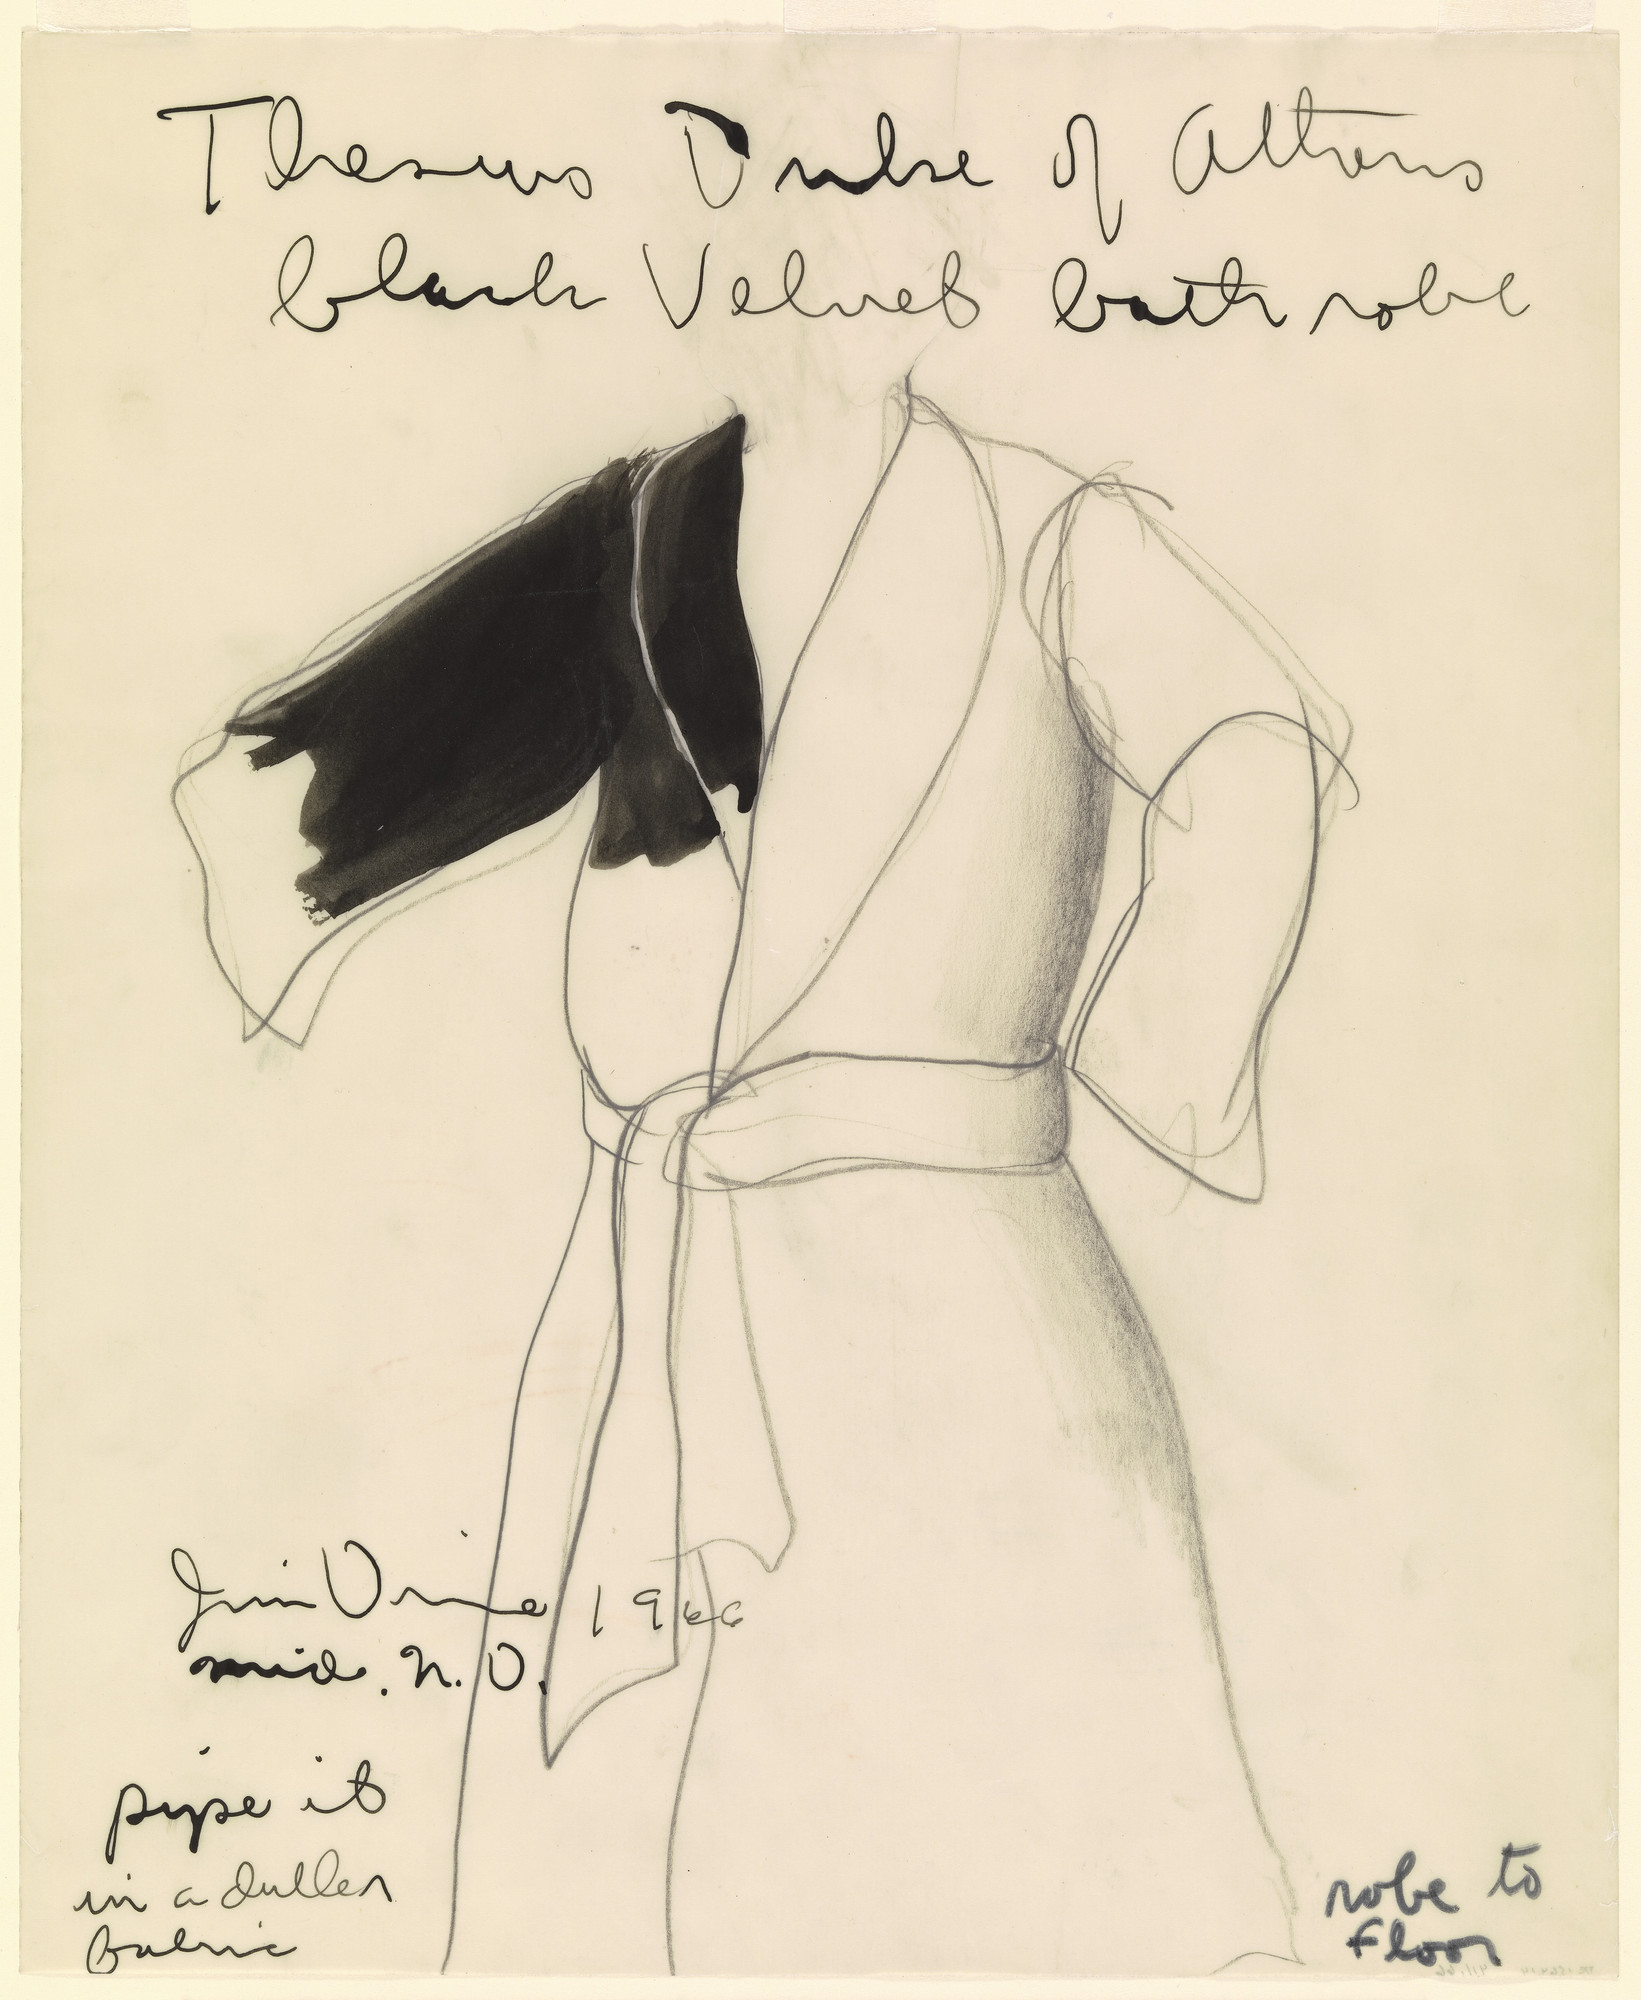 Theseus Duke of Athens
black Velvet bathrobe
Jim Dine 1966
mid. N. D.
pipe it
in a duller
fabric
robe to
Floor